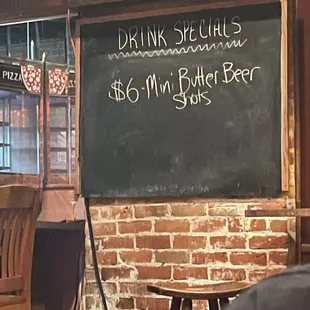 DRINK SPECIALS
$6-Mini Butter Beer
shots
PIZZA